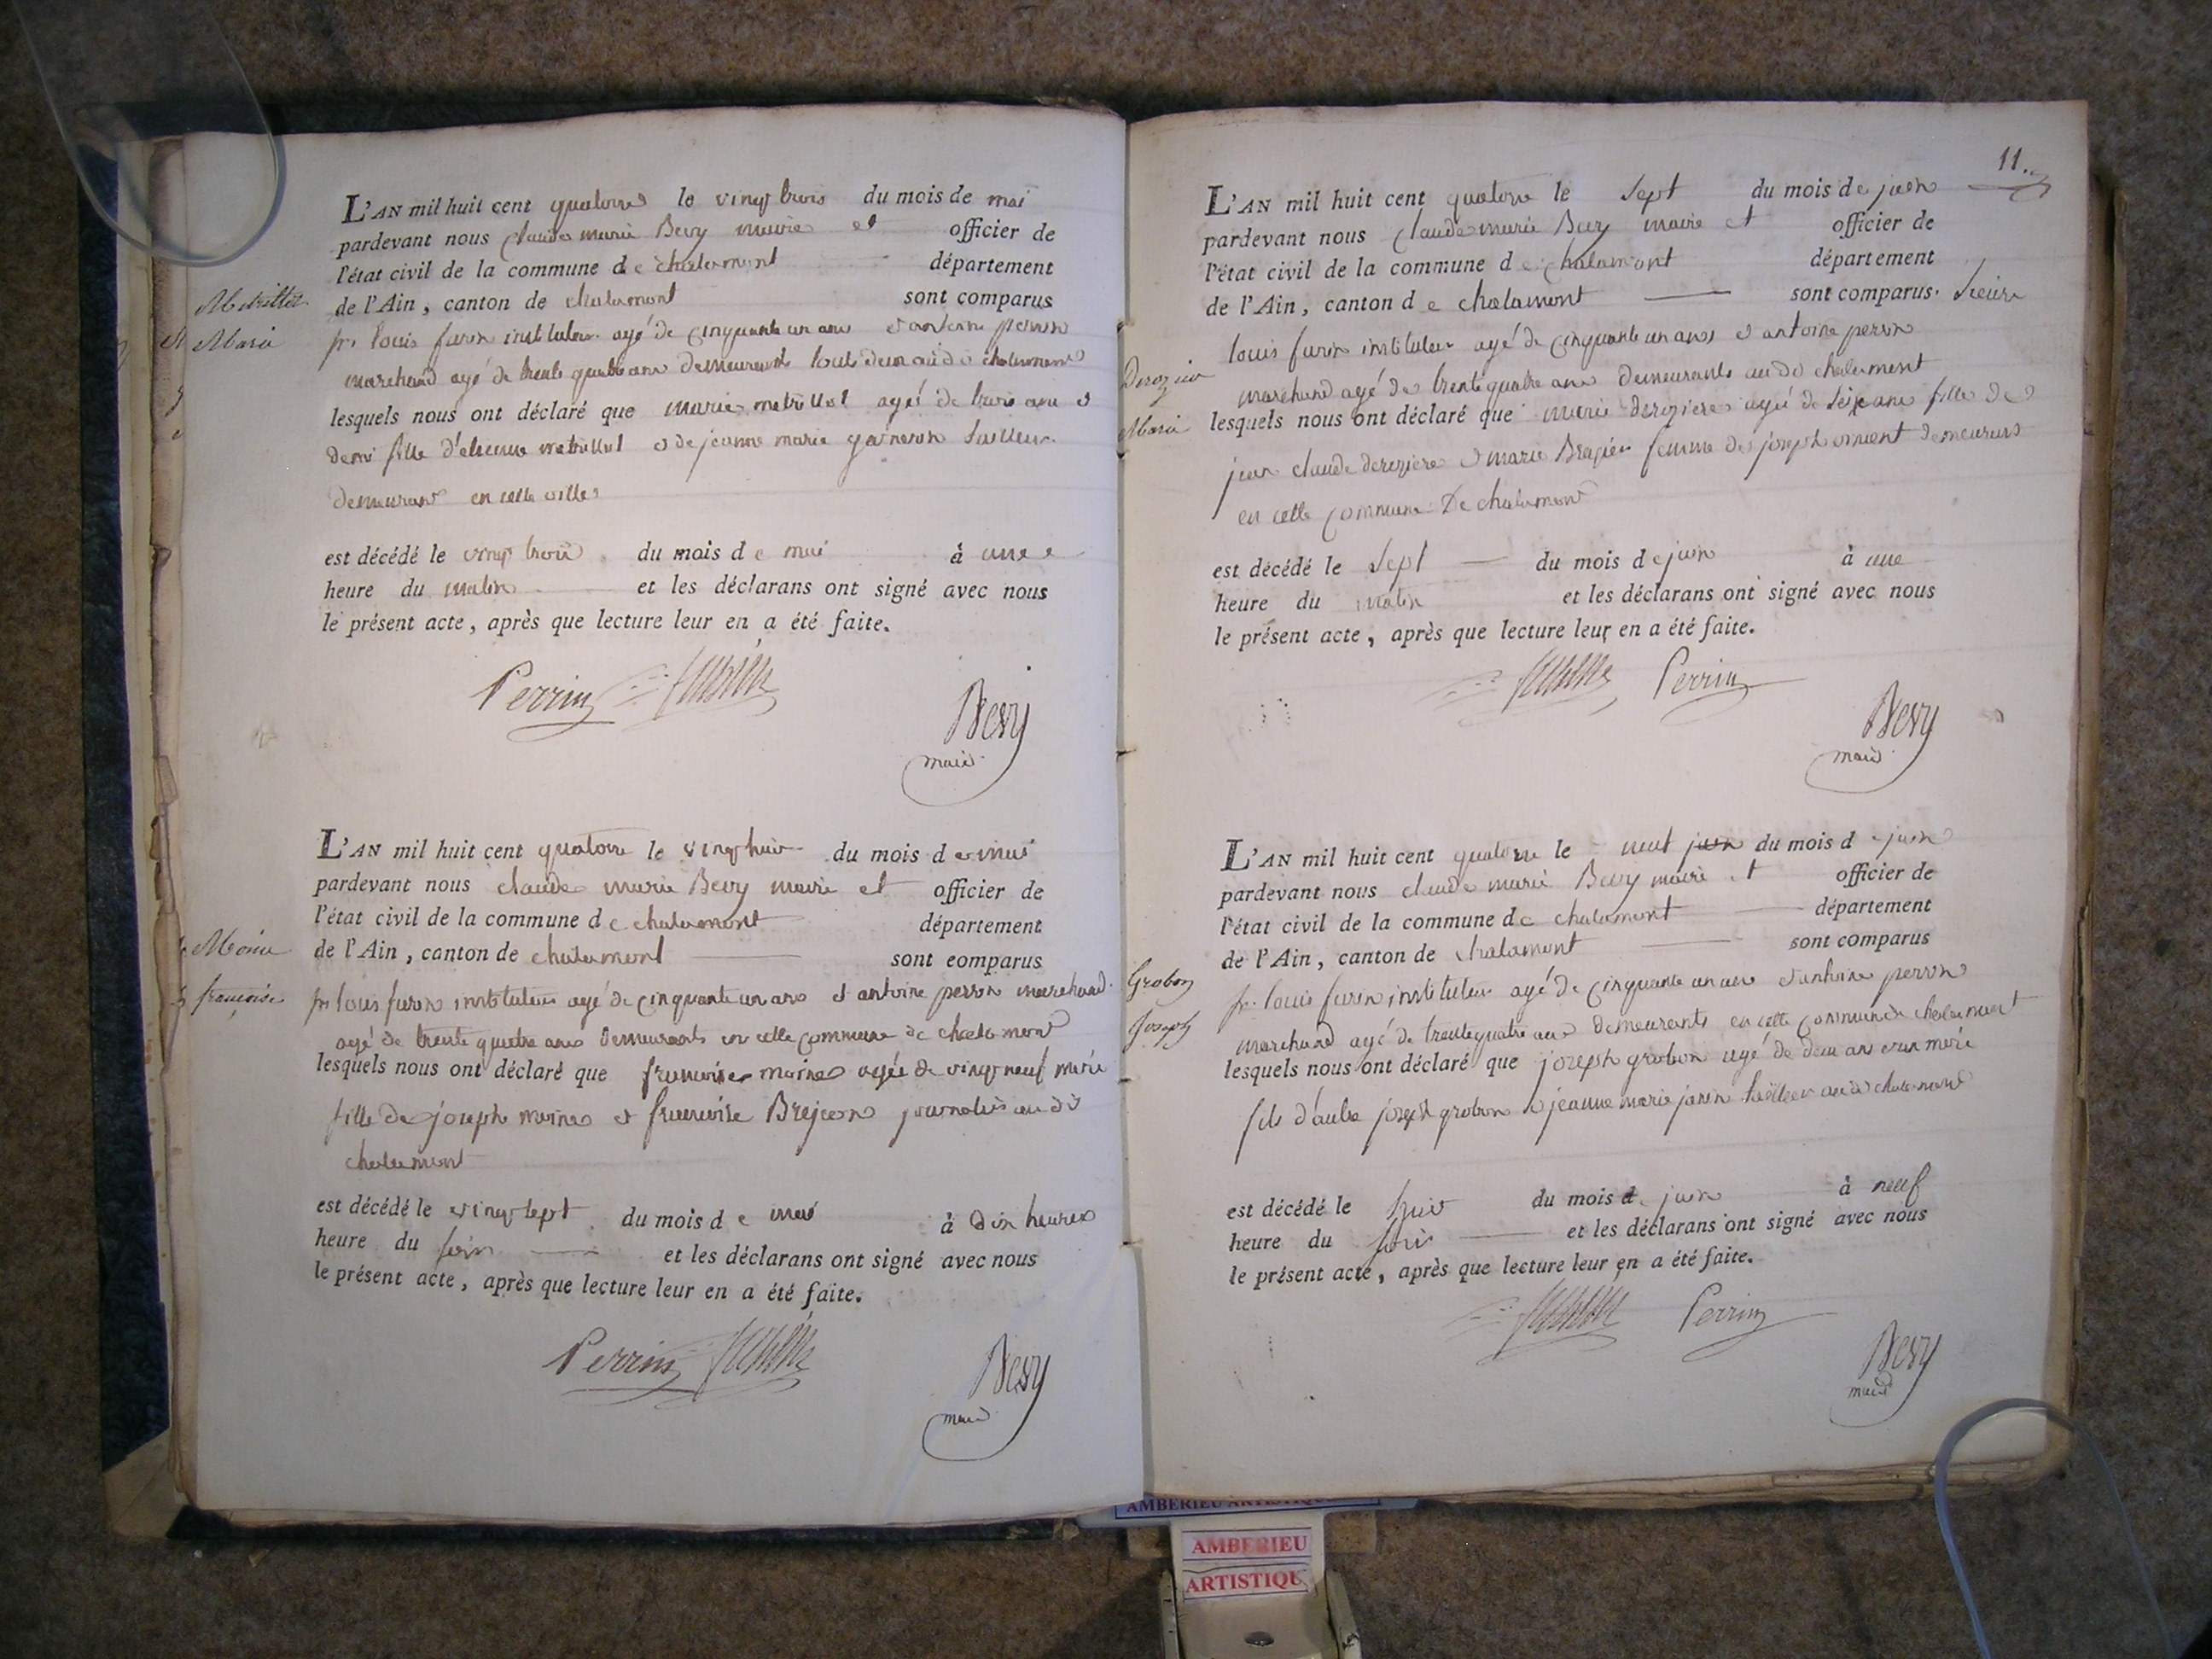 L'AN mil huit cent quatorze le vingt trois du mois de mai
pardevant nous claude marie Bevy maire et officier de
l'état civil de la commune de chalamont département
de l'Ain, canton de chalamont sont comparus
Marie
louis furin instituteur agé de cinquante un ans et antoine perrin
marchand agé de trente quatre ans demeurants tout deux audit chalamont
lesquels nous ont déclaré que marie metrillot agée de trois ans et
demi fille d'etienne metrillot et de jeanne marie garneron tailleur
demeurant en cette ville
est décédé le vingt trois du mois de mai à une
heure du matin et les déclarans ont signé avec nous
le présent acte, après que lecture leur en a été faite.
Perrin furin
Bevy
maire
L'AN mil huit cent quatorze le vingt huit du mois de mai
pardevant nous claude marie Bevy maire et officier de
l'état civil de la commune de chalamont département
Moine
de l'Ain, canton de chalamont sont comparus
françoise
fr. louis furin instituteur agé de cinquante un ans et antoine perrin marchand
agé de trente quatre ans demeurants en cette commune de chalamont
lesquels nous ont déclaré que francoise moine agée de vingt neuf
fille de joseph moine et francoise Brejean journalier audit
chalamont
est décédé le vingt sept du mois de mai à dix heures
heure du soir et les déclarans ont signé avec nous
le présent acte, après que lecture leur en a été faite.
Perrin furin
Bevy
maire
11..
L'AN mil huit cent quatorze le sept du mois de juin
pardevant nous claude marie Bevy maire et officier de
l'état civil de la commune de chalamont département
de l'Ain, canton de chalamont sont comparus. Sieurs
louis furin instituteur agé de cinquante un ans et antoine perrin
marchand agé de trente quatre ans demeurants audit chalamont
Marie
lesquels nous ont déclaré que marie deroziere agée de seize ans fille de
jean claude deroziere et marie Brazier femme de joseph vincent demeurant
en cette commune De chalamont
est décédé le sept du mois de juin à une
heure du matin et les déclarans ont signé avec nous
le présent acte, après que lecture leur en a été faite.
furin Perrin
Bevy
maire
L'AN mil huit cent quatorze le neuf juin du mois de juin
pardevant nous claude marie Bevy maire et officier de
l'état civil de la commune de chalamont département
de l'Ain, canton de chalamont sont comparus
Grobon
fr. louis furin instituteur agé de cinquante un ans et antoine perrin
Joseph
marchand agé de trente quatre ans demeurants en cette commune de chalamont
lesquels nous ont déclaré que joseph grobon agé de deux ans
fils d'autre joseph grobon et jeanne marie janin tailleur audit chalamont
est décédé le huit du mois de juin à neuf
heure du soir et les déclarans ont signé avec nous
le présent acte, après que lecture leur en a été faite.
furin Perrin
Bevy
maire
AMBERIEU
ARTISTIQU